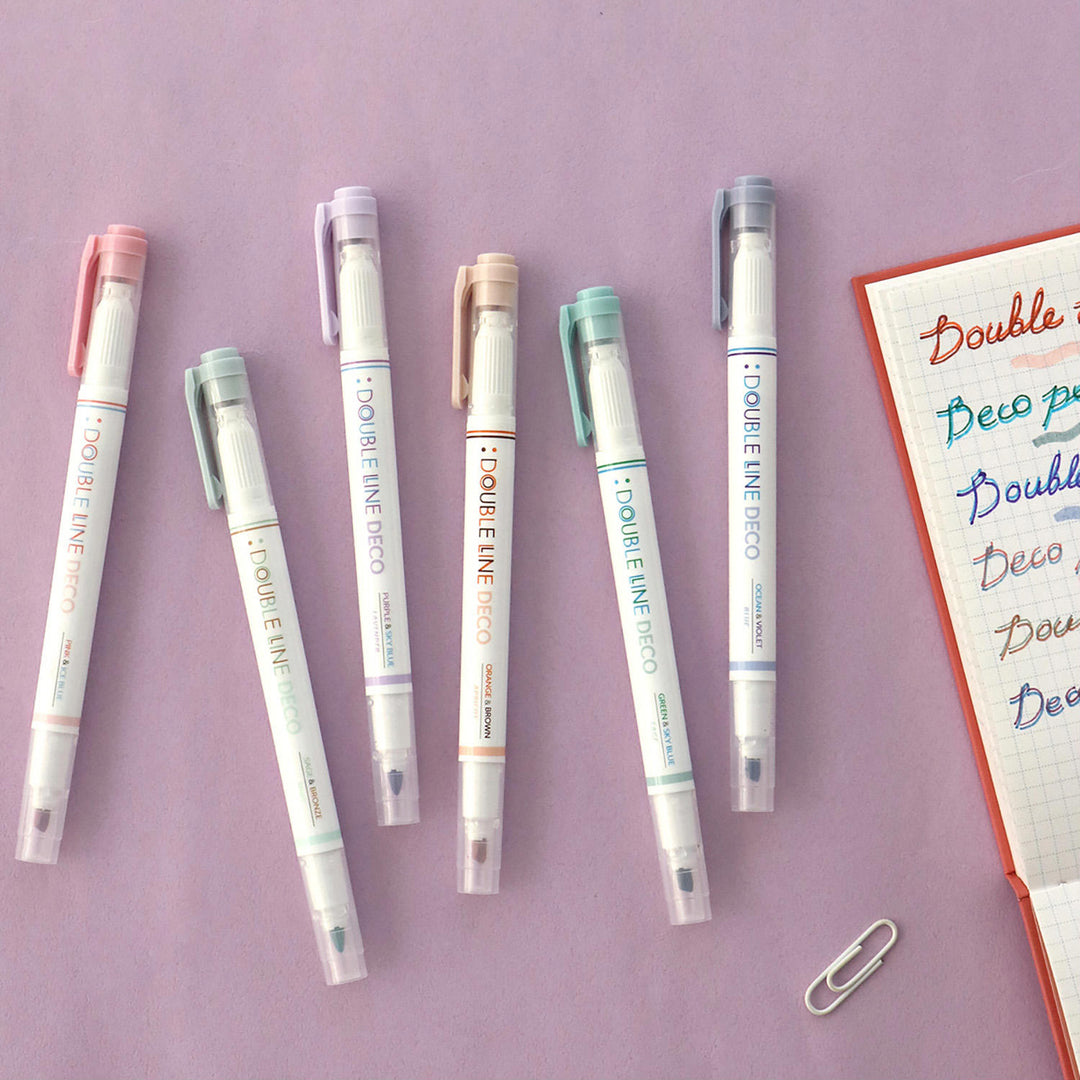 : DOUBLE LINE DECO
PINK & ICE BLUE
: DOUBLE LINE DECO
SAGE & BRONZE
: DOUBLE LINE DECO
PURPLE & SKY BLUE
LAVENDER
: DOUBLE LINE DECO
ORANGE & BROWN
APRICOT
: DOUBLE LINE DECO
GREEN & SKY BLUE
SAGE
: DOUBLE LINE DECO
OCEAN & VIOLET
BLUE
Double
Deco pe
Double
Deco
Dou
Deco